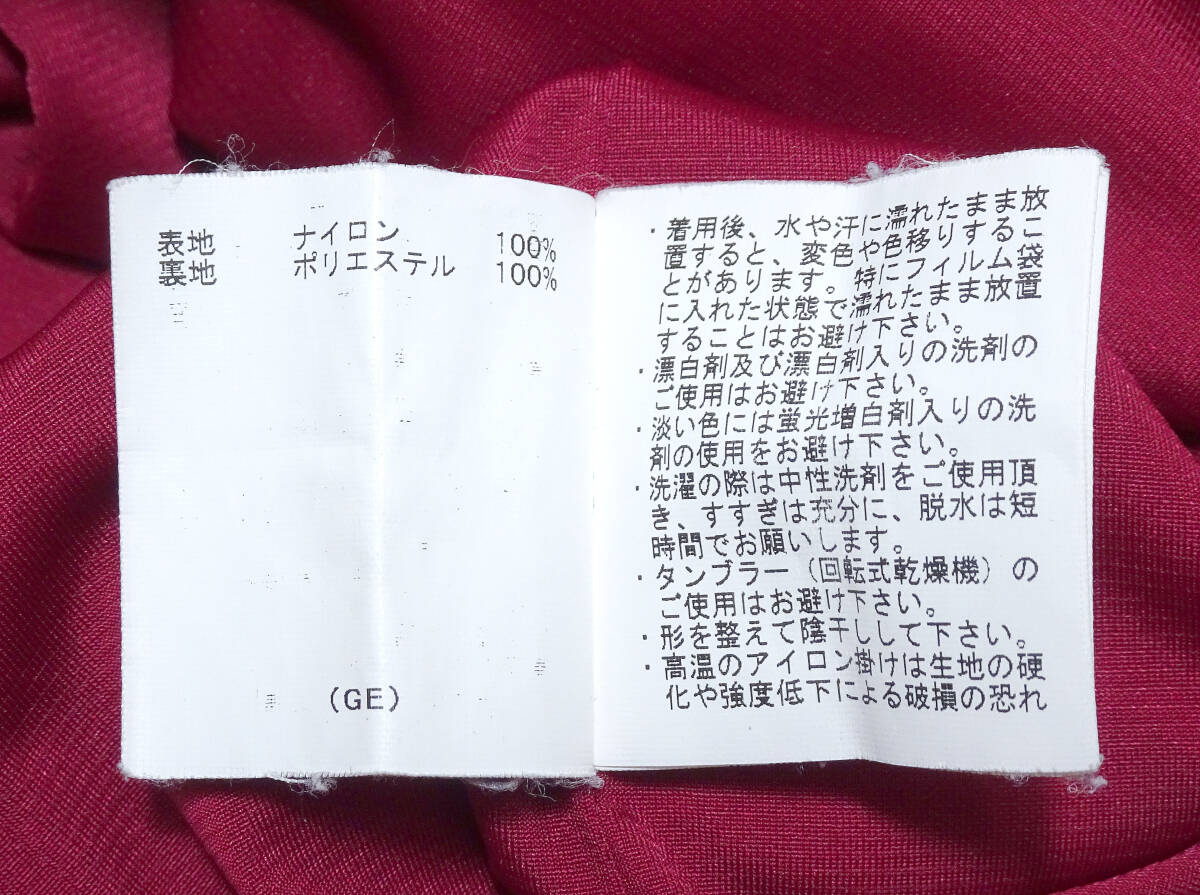 表地 ナイロン 100%
裏地 ポリエステル 100%
(GE)
・着用後、水や汗に濡れたまま放
置すると、変色や色移りするこ
とがあります。特にフィルム袋
に入れた状態で濡れたまま放置
することはお避け下さい。
・漂白剤及び漂白剤入りの洗剤の
ご使用はお避け下さい。
・淡い色には蛍光増白剤入りの洗
剤の使用をお避け下さい。
・洗濯の際は中性洗剤をご使用頂
き、すすぎは充分に、脱水は短
時間でお願いします。
・タンブラー(回転式乾燥機)の
ご使用はお避け下さい。
・形を整えて陰干しして下さい。
・高温のアイロン掛けは生地の硬
化や強度低下による破損の恐れ